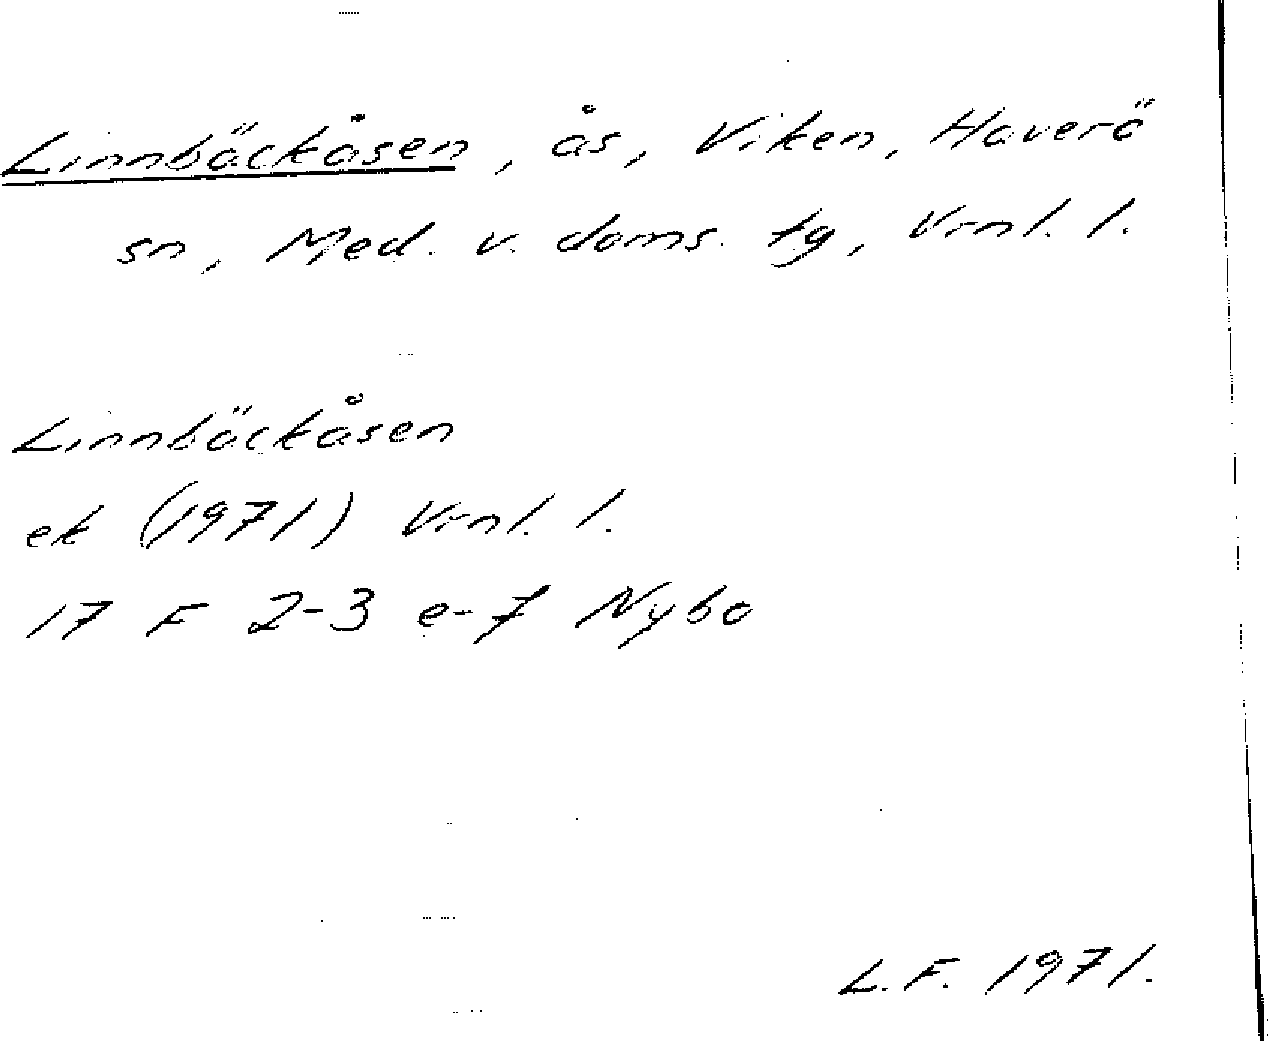 Linnbäckåsen, ås, Viken, Haverö
sn, Med. v. doms. tg, Vrnl. l.
Linnbäckåsen
ek (1971) Vrnl. l.
17 F 2-3 e-f Nybo
L.F. 1971.